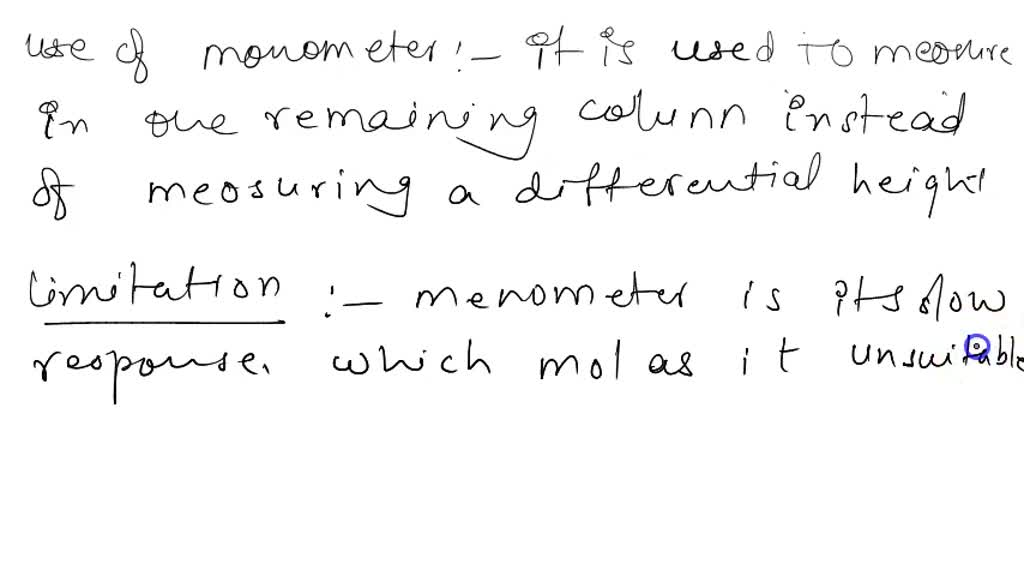 use of monometer :- it is used to measure
in one remaining column instead
of meosuring a differential height
Limitation :- menometer is its slow
response. which mol as it unsuitable